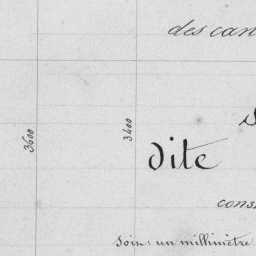 des can
3600
3400
dite
cons
soin: un millimètre